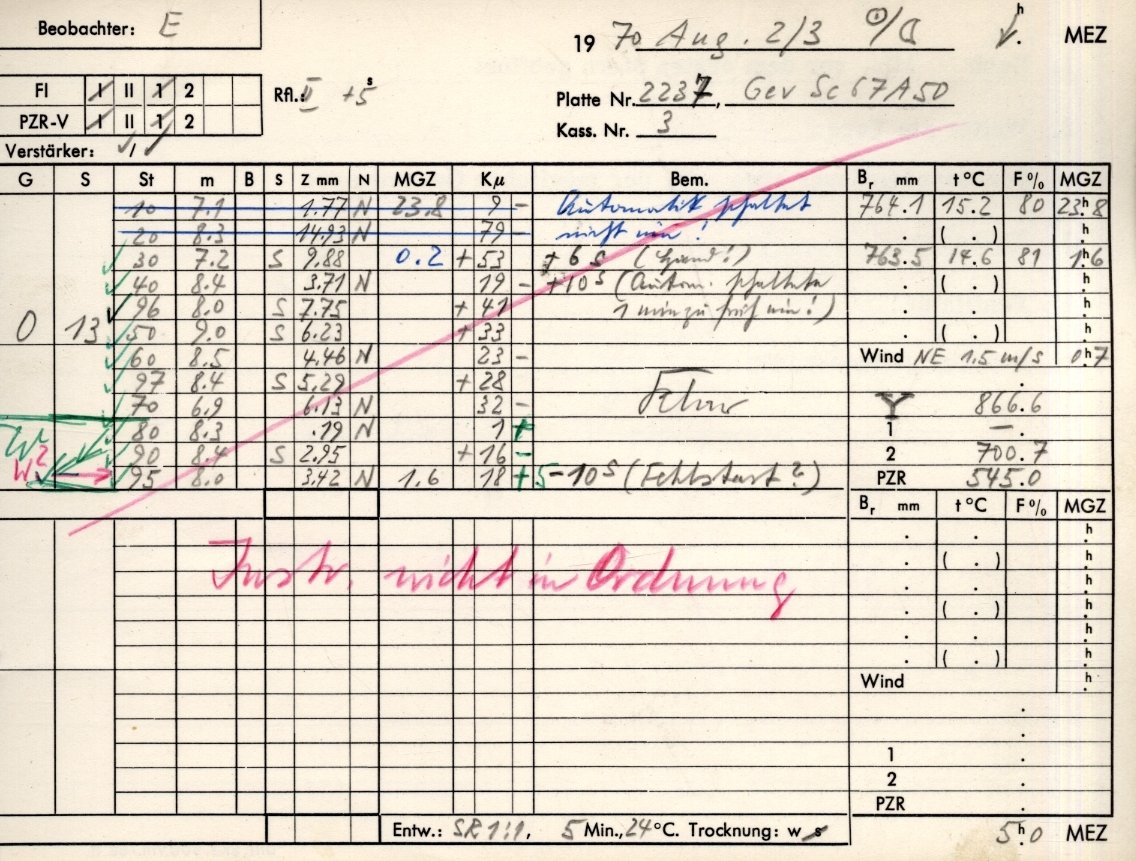 Beobachter: E
19 70 Aug. 2/3 ☉/☾ h . MEZ
FI I II 1 2
PZR-V I II 1 2
Rfl.: II +5s
Platte Nr. 2237, Gev Sc 67A50
Kass. Nr. 3
Verstärker: /
G S St m B S Z mm N MGZ Kμ Bem. Br mm t °C F % MGZ
10 7.1 1.77 N 23.8 9 - Automatik schaltet 764.1 15.2 80 23h8
20 8.3 14.93 N 79 - nicht ein! ( . ) h.
30 7.2 S 9.88 0.2 + 53 + 6 s (Hand!) 763.5 14.6 81 1h6
40 8.4 3.71 N 19 - +10s (Autom. schaltete . ( . ) h.
96 8.0 S 7.75 + 41 1 min zu früh ein!) . . h.
0 13 50 9.0 S 6.23 + 33 . ( . ) h.
60 8.5 4.46 N 23 - Wind NE 1.5 m/s 0h7
97 8.4 S 5.29 + 28 .
70 6.9 6.13 N 32 - Y 866.6
80 8.3 .19 N 1 + 1 —.
W2 90 8.4 S 2.95 + 16 - 2 700.7
W 95 8.0 3.42 N 1.6 18 + 5 -10s (Fehlstart?) PZR 545.0
Br mm t °C F % MGZ
. . h.
. ( . )
Instr. nicht in Ordnung
. . h.
. ( . ) h.
. . h.
. ( . ) h.
Wind h.
.
.
1 .
2 .
PZR .
Entw.: SR 1:1, 5 Min., 24 °C. Trocknung: w s 5h.0 MEZ